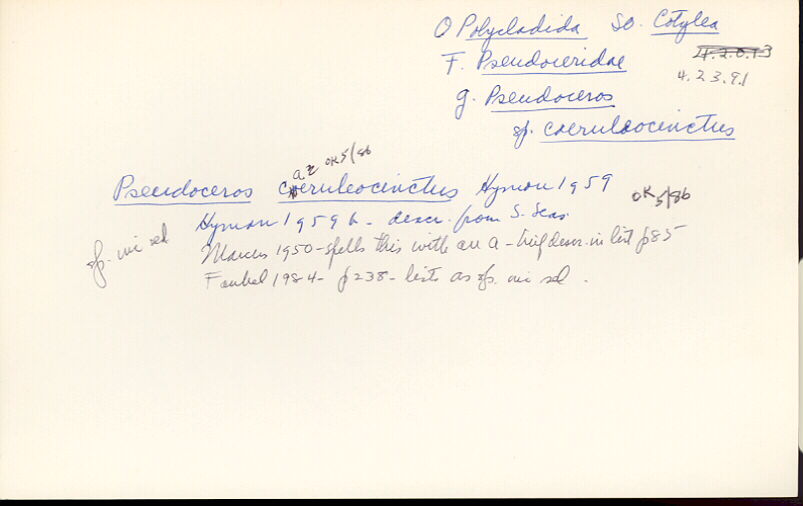 O Polycladida SO. Cotylea
F. Pseudoceridae 4.2.0.13
4.23.91
g. Pseudoceros
sp. caeruleocinctus
az OK 5/86
Pseudoceros caeruleocinctus Hyman 1959
OK 5/86
Hyman 1959b - descr. from S. Seas.
sp. nix sed Marcus 1950 - spells this with an a - brief descr. in list p 85
Faubel 1984 - p 238 - lists as sp. nix sed.